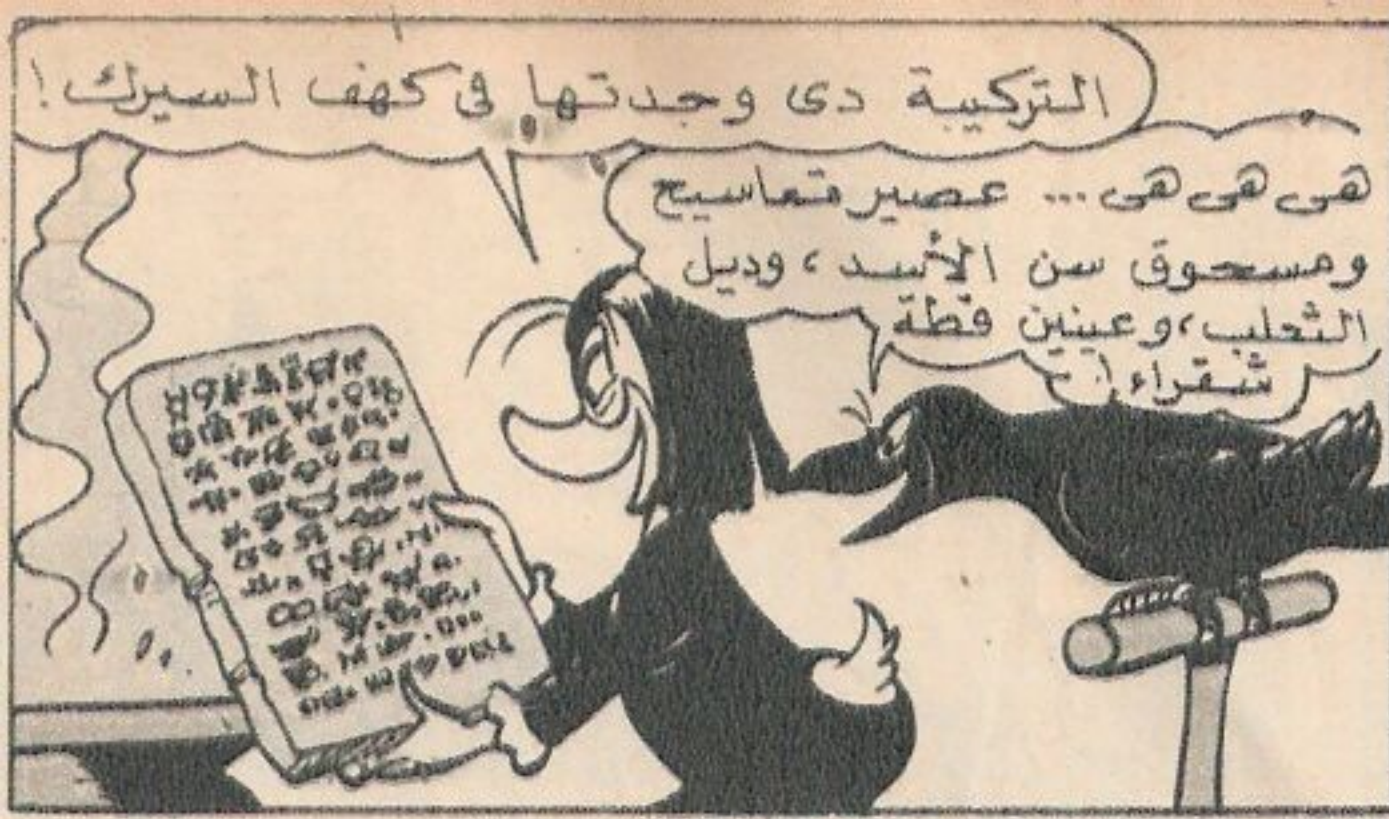 التركيبة دى وجدتها فى كهف السيرك!
هى هى هى ... عصير تماسيح
ومسحوق سن الأسد، وديل
الثعلب، وعينين قطة
شقراء!